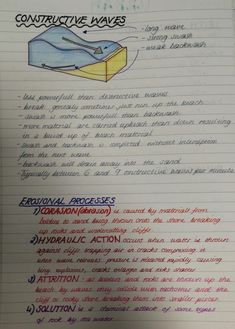 CONSTRUCTIVE WAVES
- long wave
- strong swash
- weak backwash
- less powerfull than destructive waves
- break gently and just run up the beach
- swash is more powerfull than backwash
- more material are carried up beach than down resulting
in a build up of beach material
- swash and backwash is completed without interruption
from the next wave.
- backwash will drain away into the sand
- typically between 6 and 9 constructive waves per minute
EROSIONAL PROCESSES
1) CORASION (abrasion) is caused by material from
being thrown onto the shore breaking
up rocks and undercutting cliffs
2) HYDRAULIC ACTION occurs when water is thrown
against cliff trapping air in cracks compressing it
when wave retreats pressure is released rapidly causing
tiny explosions, cracks enlarge and rocks shatter
3) ATTRITION - as and rocks are thrown up the
beach by waves they collide with each other and the
cliff or rocky shore breaking them into smaller pieces.
4) SOLUTION is a chemical attack of some types
of rock by sea water